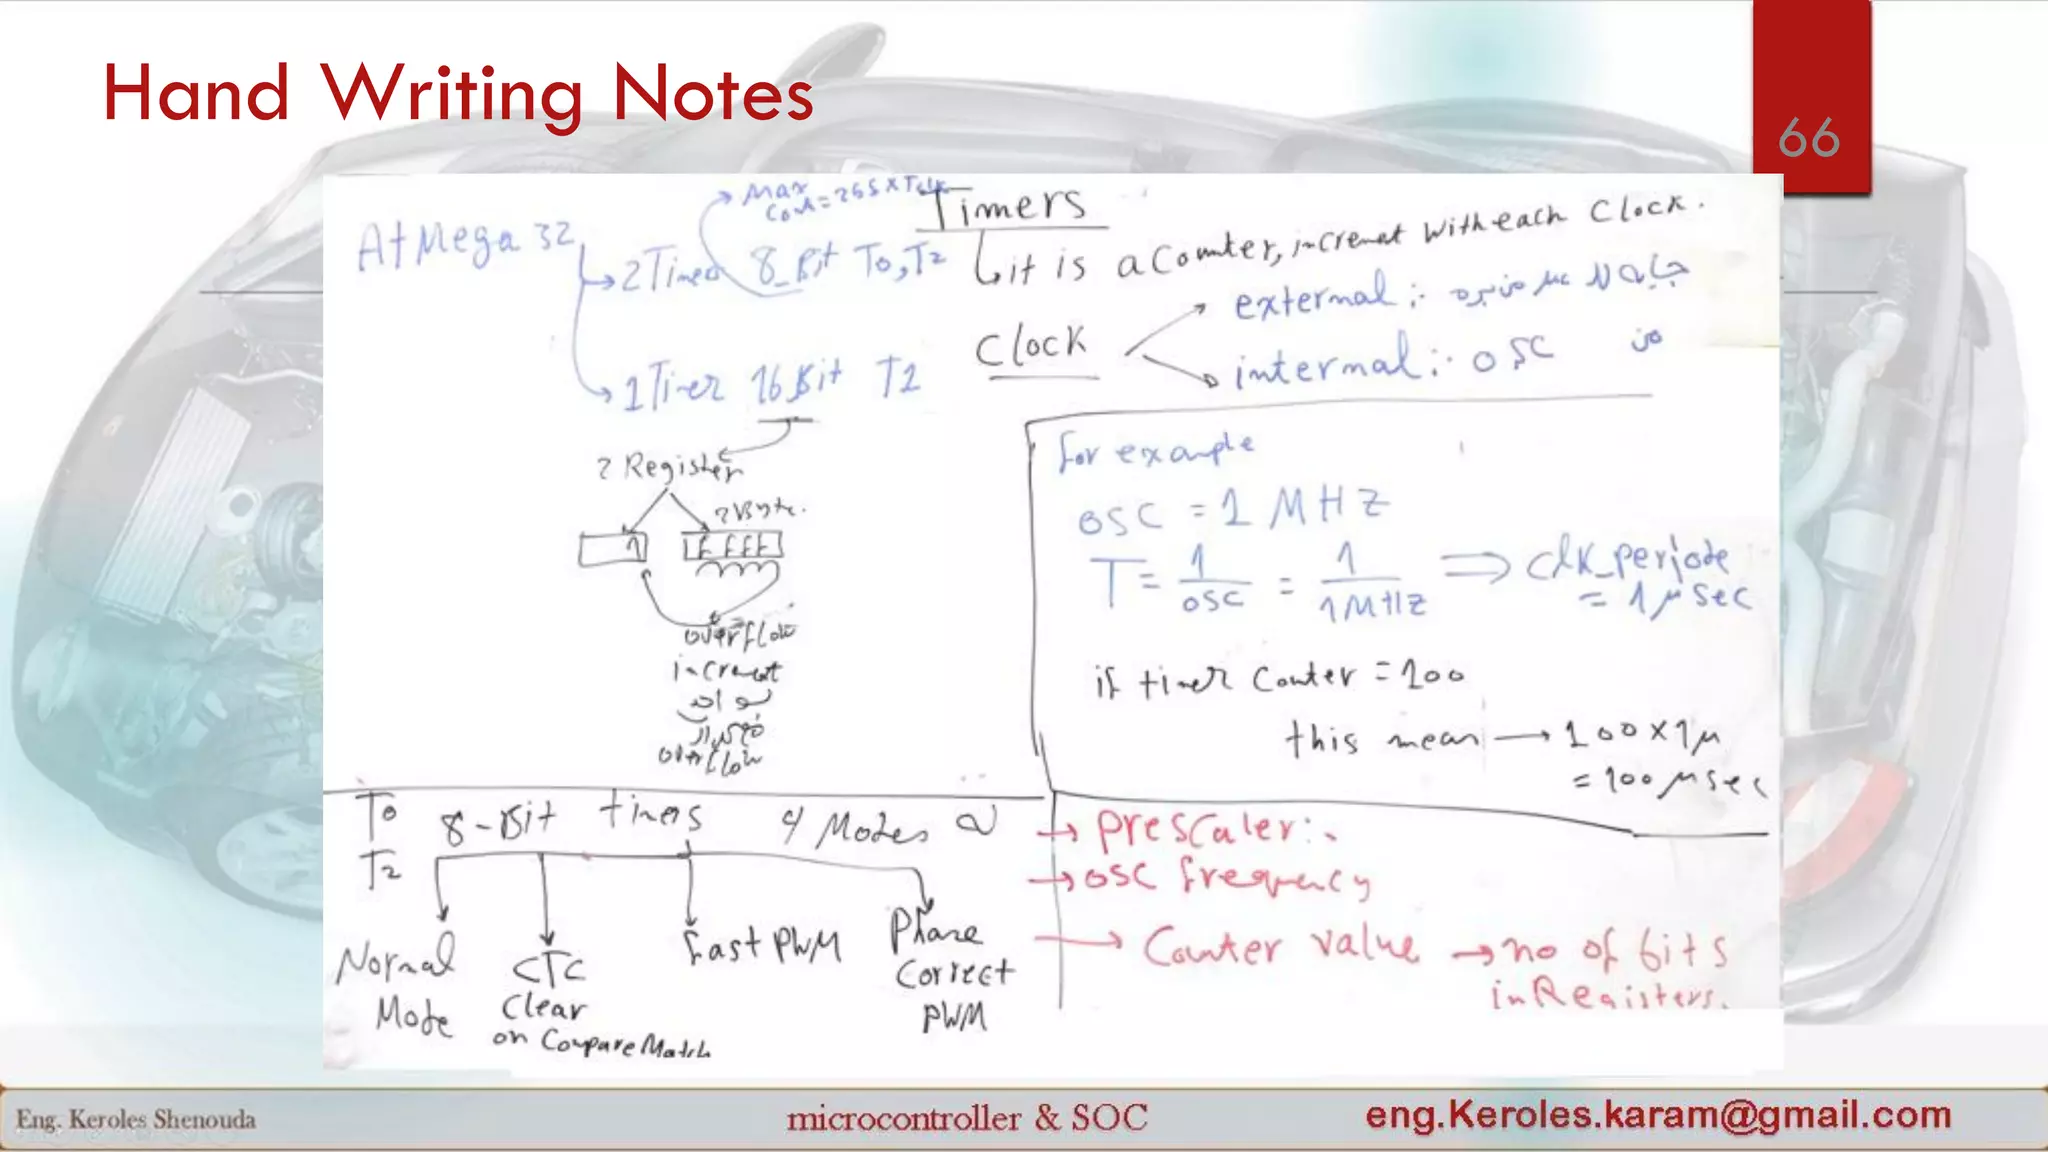 Hand Writing Notes
66
Timers
it is a Counter, increment with each Clock.
AtMega 32
Max
Count = 255 x Tclk
2 Timer 8_Bit T0, T2
1 Timer 16 Bit T1
Clock
external :-
internal :- OSC من
2 Register
2 Byte.
1
FFFF
overflow
increment
overflow
for example
OSC = 1 MHZ
T = 1/OSC = 1/1MHZ ⇒ clk_periode
= 1 μ sec
if timer Counter = 100
this mean → 100 x 1μ
= 100 μ sec
T0
T2
8-Bit timers 4 Modes
Normal
Mode
CTC
Clear
on Compare Match
fast PWM
Phase
Correct
PWM
→ Prescaler :-
→ OSC frequency
→ Counter value → no of bits
in Registers.
Eng. Keroles Shenouda
microcontroller & SOC
eng.Keroles.karam@gmail.com